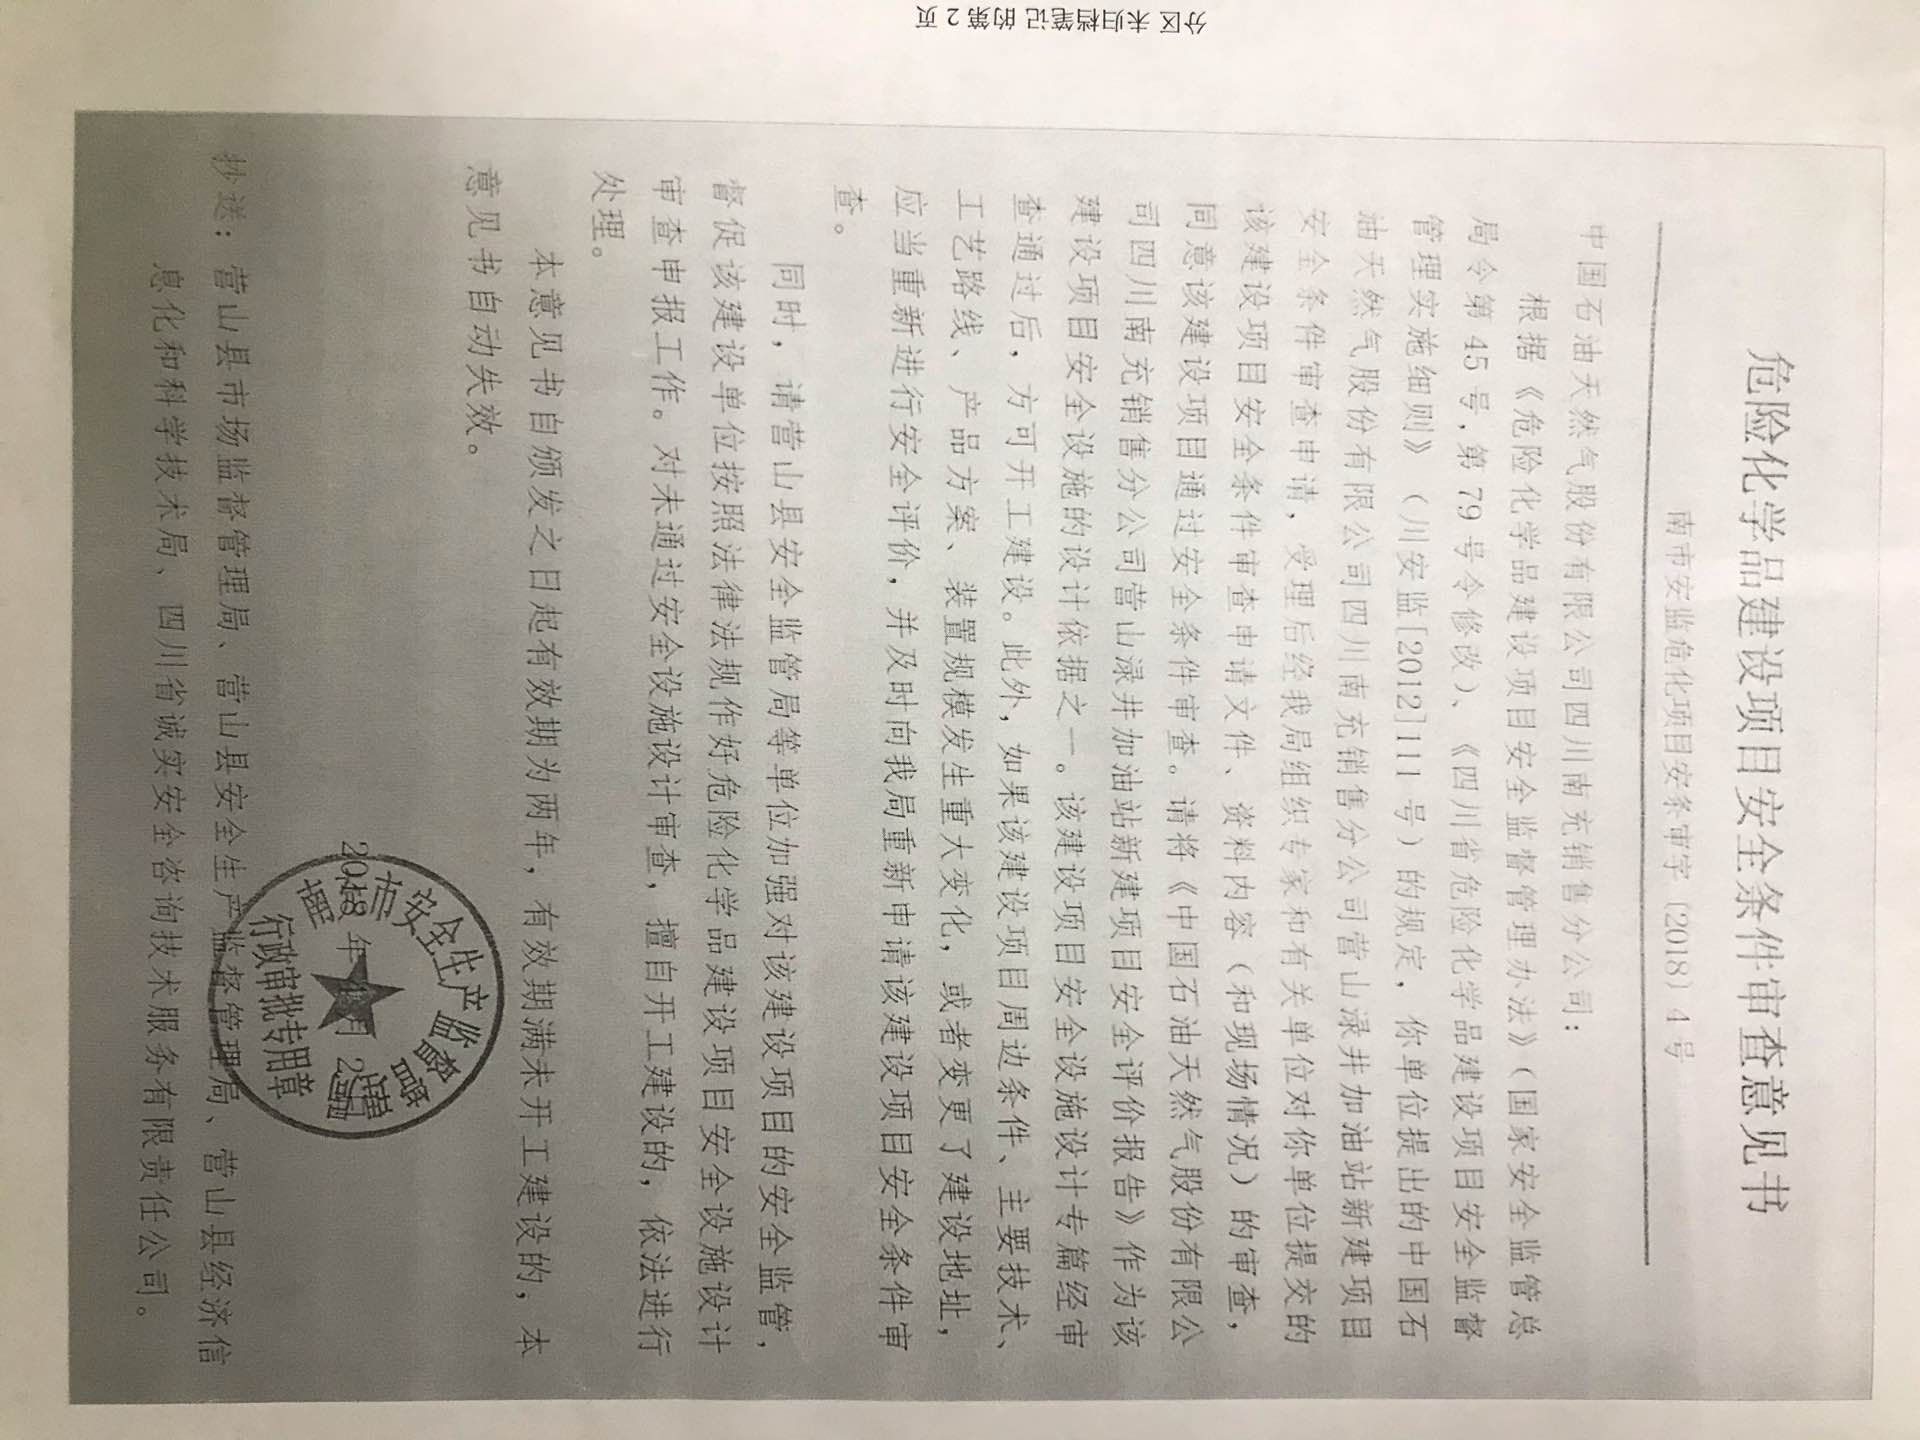 危险化学品建设项目安全条件审查意见书
南市安监危化项目安条审字〔2018〕4号
中国石油天然气股份有限公司四川南充销售分公司：
根据《危险化学品建设项目安全监督管理办法》（国家安全监管总
局令第45号，第79号令修改）、《四川省危险化学品建设项目安全监督
管理实施细则》（川安监[2012]111号）的规定，你单位提出的中国石
油天然气股份有限公司四川南充销售分公司营山渌井加油站新建项目
安全条件审查申请，受理后经我局组织专家和有关单位对你单位提交的
该建设项目安全条件审查申请文件、资料内容（和现场情况）的审查，
同意该建设项目通过安全条件审查。请将《中国石油天然气股份有限公
司四川南充销售分公司营山渌井加油站新建项目安全评价报告》作为该
建设项目安全设施的设计依据之一。该建设项目安全设施设计专篇经审
查通过后，方可开工建设。此外，如果该建设项目周边条件、主要技术、
工艺路线、产品方案、装置规模发生重大变化，或者变更了建设地址，
应当重新进行安全评价，并及时向我局重新申请该建设项目安全条件审
查。
同时，请营山县安全监管局等单位加强对该建设项目的安全监管，
督促该建设单位按照法律法规作好危险化学品建设项目安全设施设计
审查申报工作。对未通过安全设施设计审查，擅自开工建设的，依法进行
处理。
本意见书自颁发之日起有效期为两年，有效期满未开工建设的，本
意见书自动失效。
2018年 月 2
市安全生产监督管理局
行政审批专用章
抄送：营山县市场监督管理局、营山县安全生产监督管理局、营山县经济信
息化和科学技术局、四川省诚实安全咨询技术服务有限责任公司。
分区 未归档笔记 的第 2 页